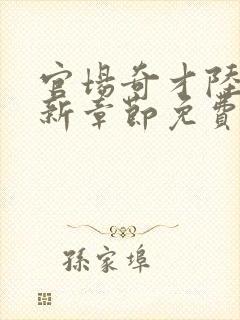 官場奇才陸
新章節免費
孫家埠